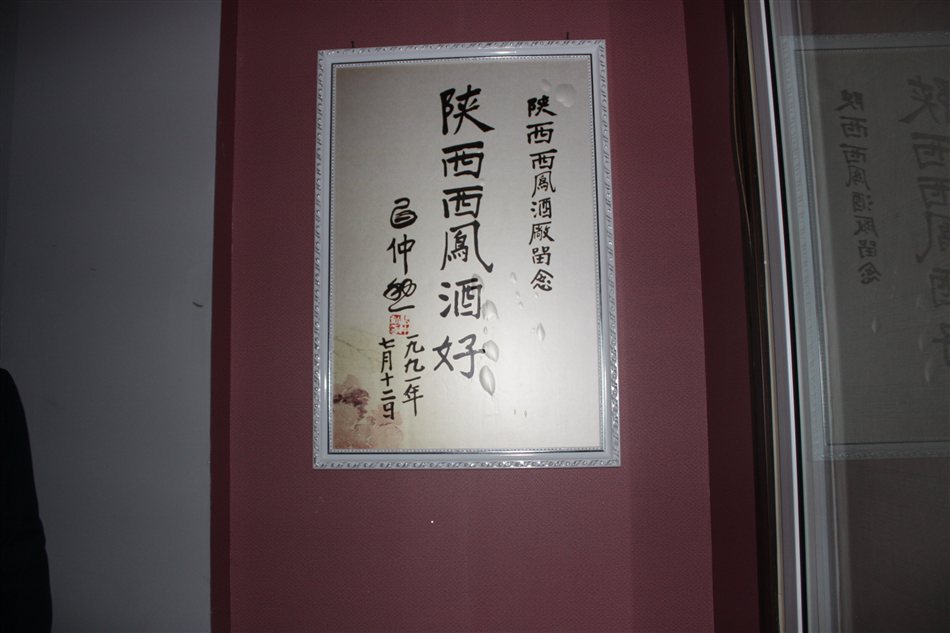 陕西西鳳酒厰留念
陕西西鳳酒好
吕仲
一九九一年
七月十二日